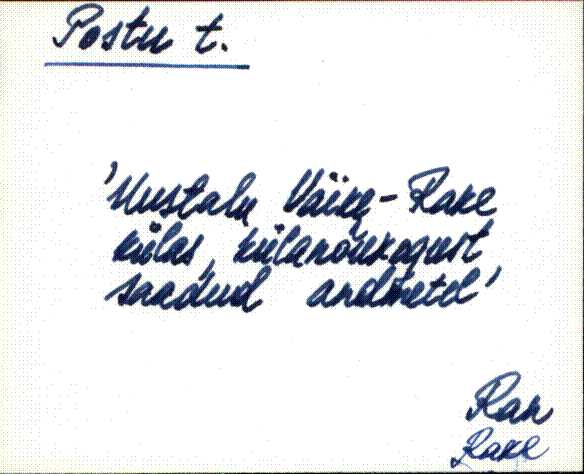 Postu t.
'Uustalu Väike-Rake
külas, külanõukogust
saadud andmetel'
Ran
Rake